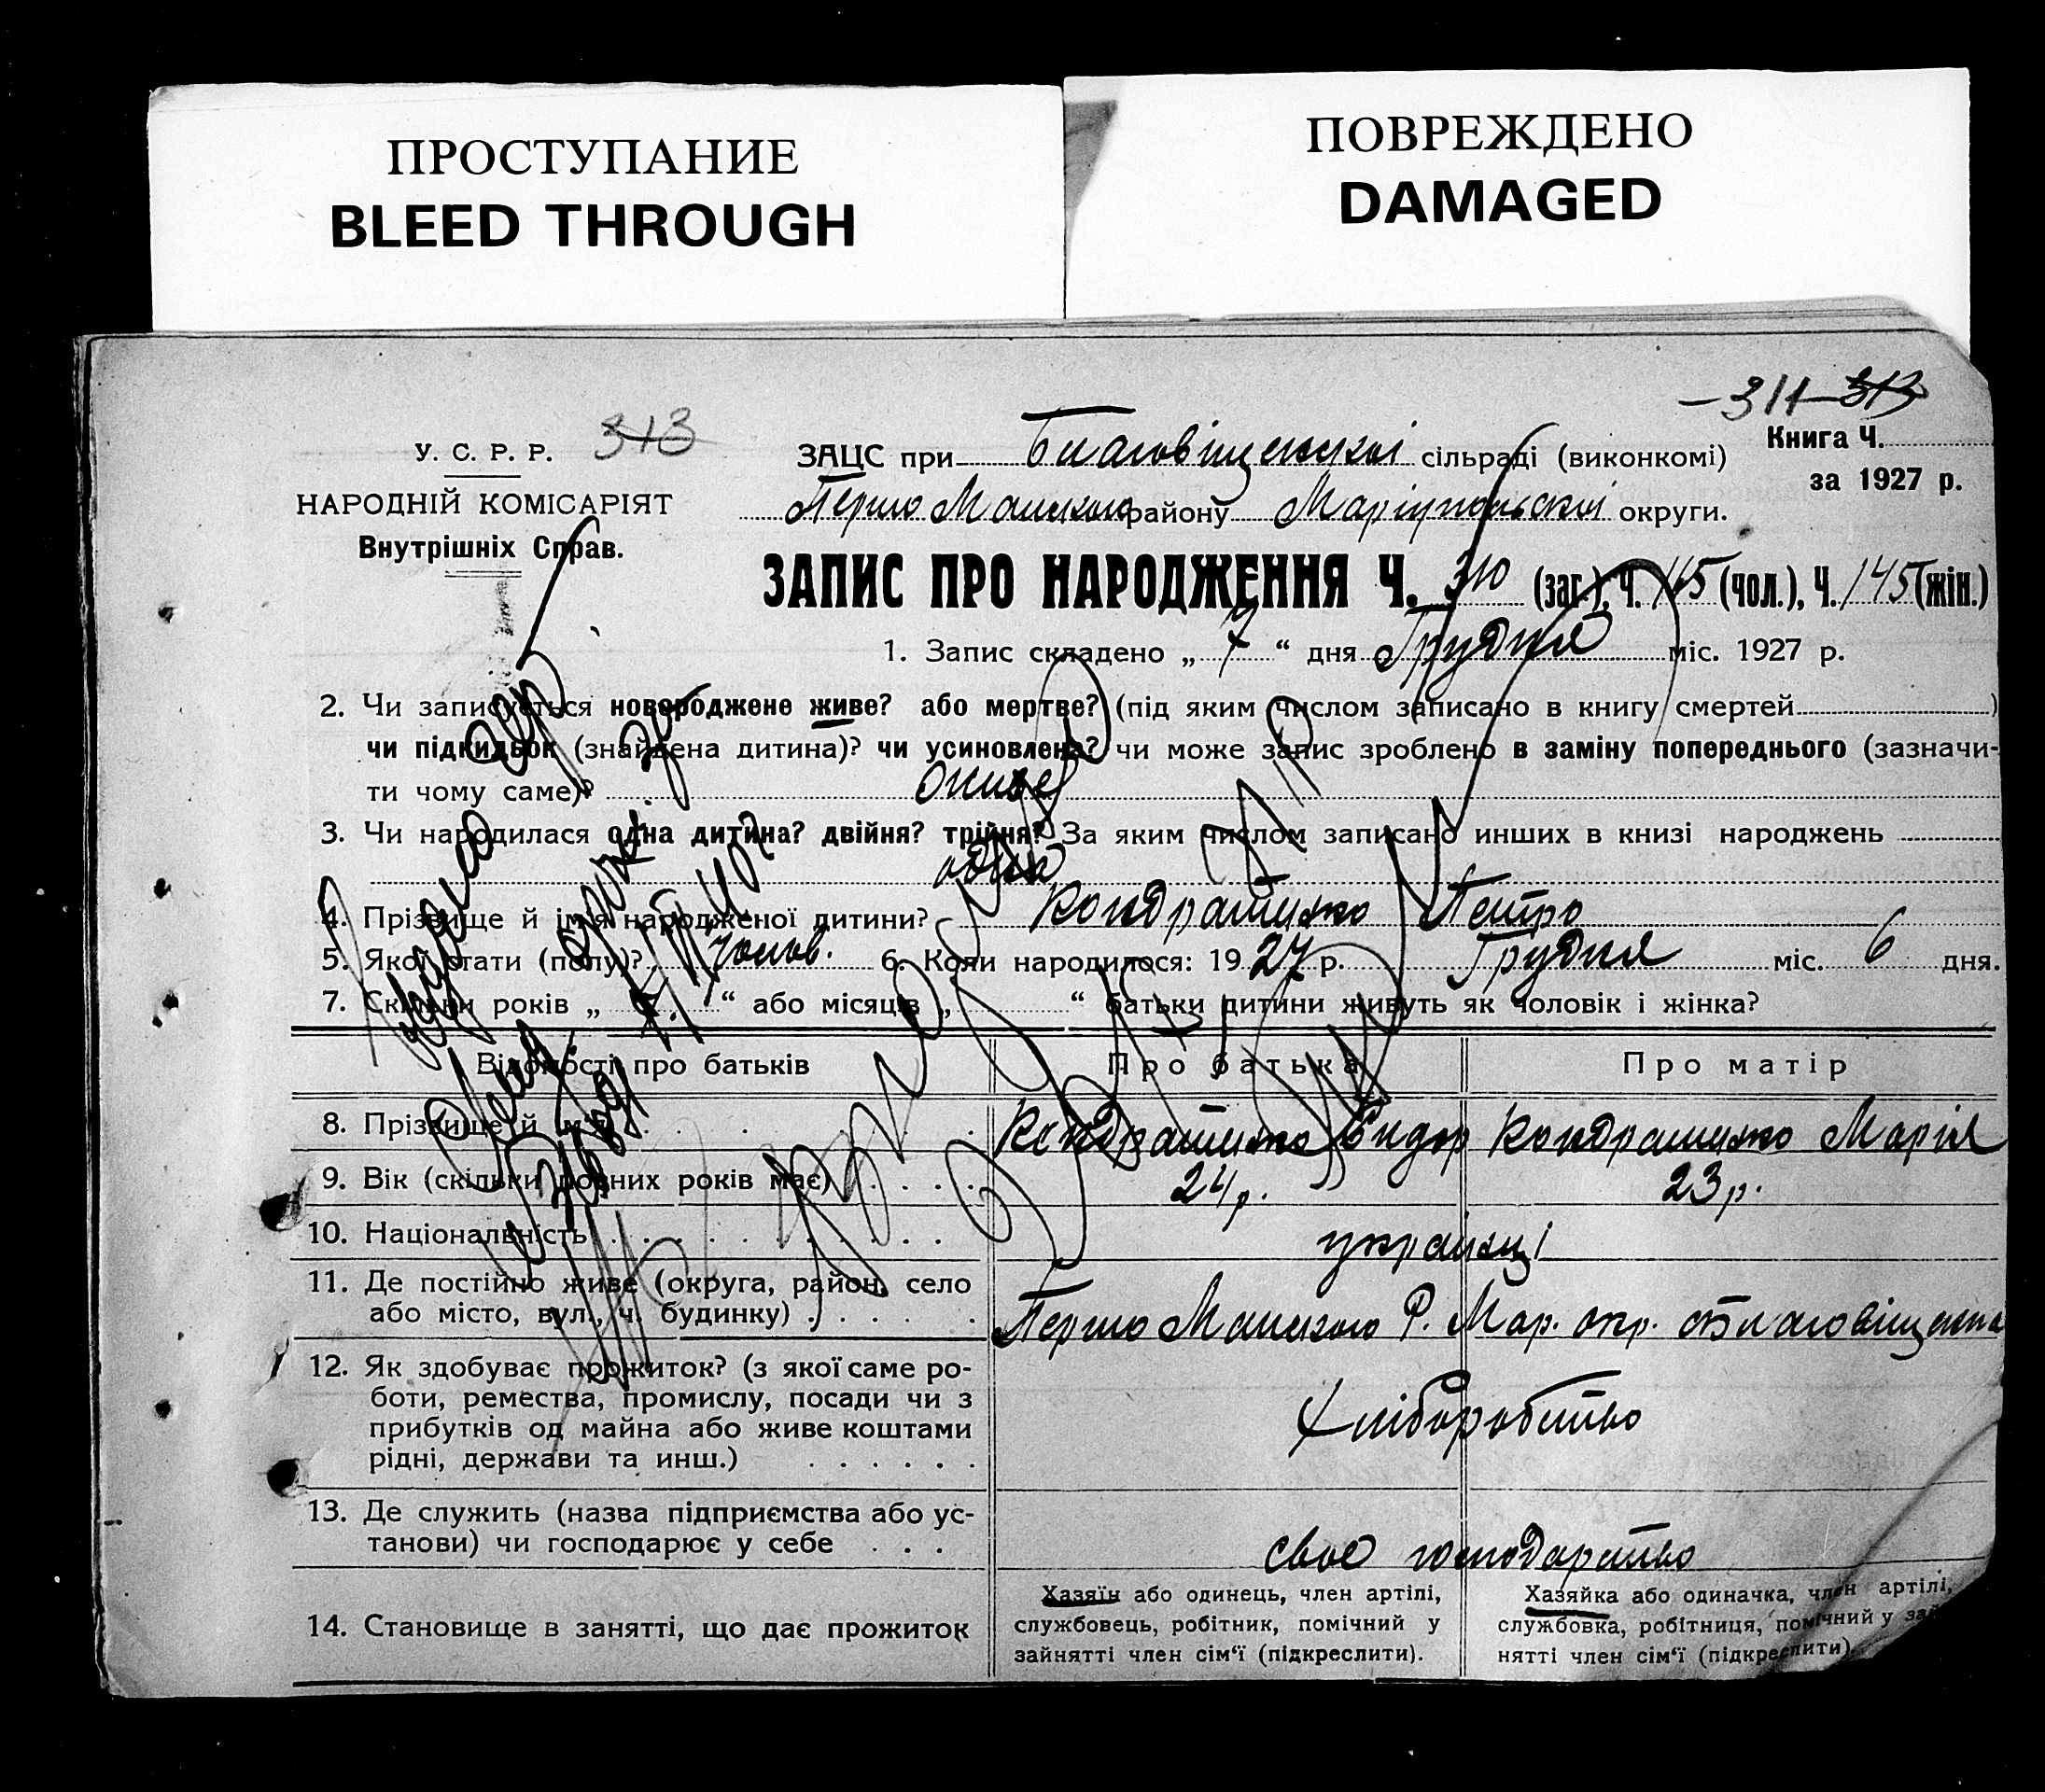 ПРОСТУПАНИЕ
BLEED THROUGH
ПОВРЕЖДЕНО
DAMAGED
–311– 313
У. С. Р. Р. 313
НАРОДНІЙ КОМІСАРІЯТ
Внутрішніх Справ.
Книга Ч.
за 1927 р.
ЗАЦС при Благовіщенській сільраді (виконкомі)
Першо Майського району Маріупольської округи.
ЗАПИС ПРО НАРОДЖЕННЯ Ч. 310 (заг.), Ч. 165 (чол.), Ч. 145 (жін.)
1. Запис складено „ 7 “ дня Грудня міс. 1927 р.
2. Чи записується новороджене живе? або мертве? (під яким числом записано в книгу смертей )
чи підкидьок (знайдена дитина)? чи усиновлена? чи може запис зроблено в заміну попереднього (зазначи-
ти чому саме)? живе
3. Чи народилася одна дитина? двійня? трійня? За яким числом записано инших в книзі народжень
одна
4. Прізвище й ім'я народженої дитини? Кондратенко Петро
5. Якої стати (полу)? чолов. 6. Коли народилося: 1927 р. Грудня міс. 6 дня.
7. Скільки років „ “ або місяців „ “ батьки дитини живуть як чоловік і жінка?
Відомості про батьків Про батька Про матір
8. Прізвище й ім'я Кондратенко Сидор Кондратенко Марія
9. Вік (скільки повних років має) 24 р. 23 р.
10. Національність українці
11. Де постійно живе (округа, район, село
або місто, вул., ч. будинку) Першо Майського Р. Мар. окр. с Благовіщенка
12. Як здобуває прожиток? (з якої саме ро-
боти, ремества, промислу, посади чи з
прибутків од майна або живе коштами
рідні, держави та инш.) Хліборобство
13. Де служить (назва підприємства або ус-
танови) чи господарює у себе своє господарство
14. Становище в занятті, що дає прожиток
Хазяїн або одинець, член артілі,
службовець, робітник, помічний у
зайнятті член сім‘ї (підкреслити).
Хазяйка або одиначка, член артілі,
службовка, робітниця, помічний у зай
нятті член сім‘ї (підкреслити).